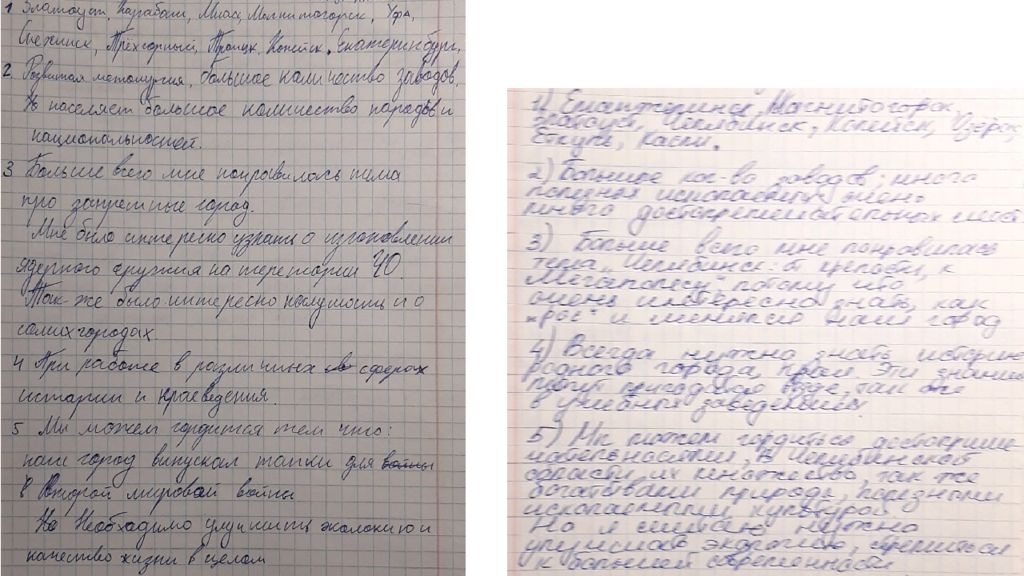 1 Златоуст, Карабаш, Миасс, Магнитогорск, Уфа,
Снежинск, Трёхгорный, Троицк, Копейск, Екатеринбург.
2 Развитая металургия, большое количество заводов.
населяет большое количество народов и
национальностей.
3 Больше всего мне понравилась тема
про запретные город.
Мне было интересно узнать о изготовлении
ядерного оружия на территории ЧО
Так-же было интересно послушать и о
самих городах.
4 При работе в различных сферах
истории и краеведения.
5 Мы можем гордится тем что:
наш город выпускал танки для войны
в Второй мировой войны
Но Необходимо улучшить экологию и
качество жизни в целом
1) Еманжелинск, Магнитогорск,
Златоуст, Челябинск, Копейск, Озёрск,
Еткуль, Касли.
2) Большое кол-во заводов; много
полезных ископаемых, очень
много достопремечательных мест
3) Больше всего мне понравилась
тема "Челябинск: от крепости, к
Мегаполису" потому что
очень интересно знать, как
"рос" и менялся наш город
4) Всегда нужно знать историю
родного города, края. Эти знания
могут пригодится везде, так же
в учебных заведениях.
5) Мы можем гордиться достоприме-
чательностями, в Челябинской
области их множество, так же
богатствами природы, полезными
ископаемыми, культурой.
Но я считаю нужно
улучшать экологию, стремиться
к большей современности